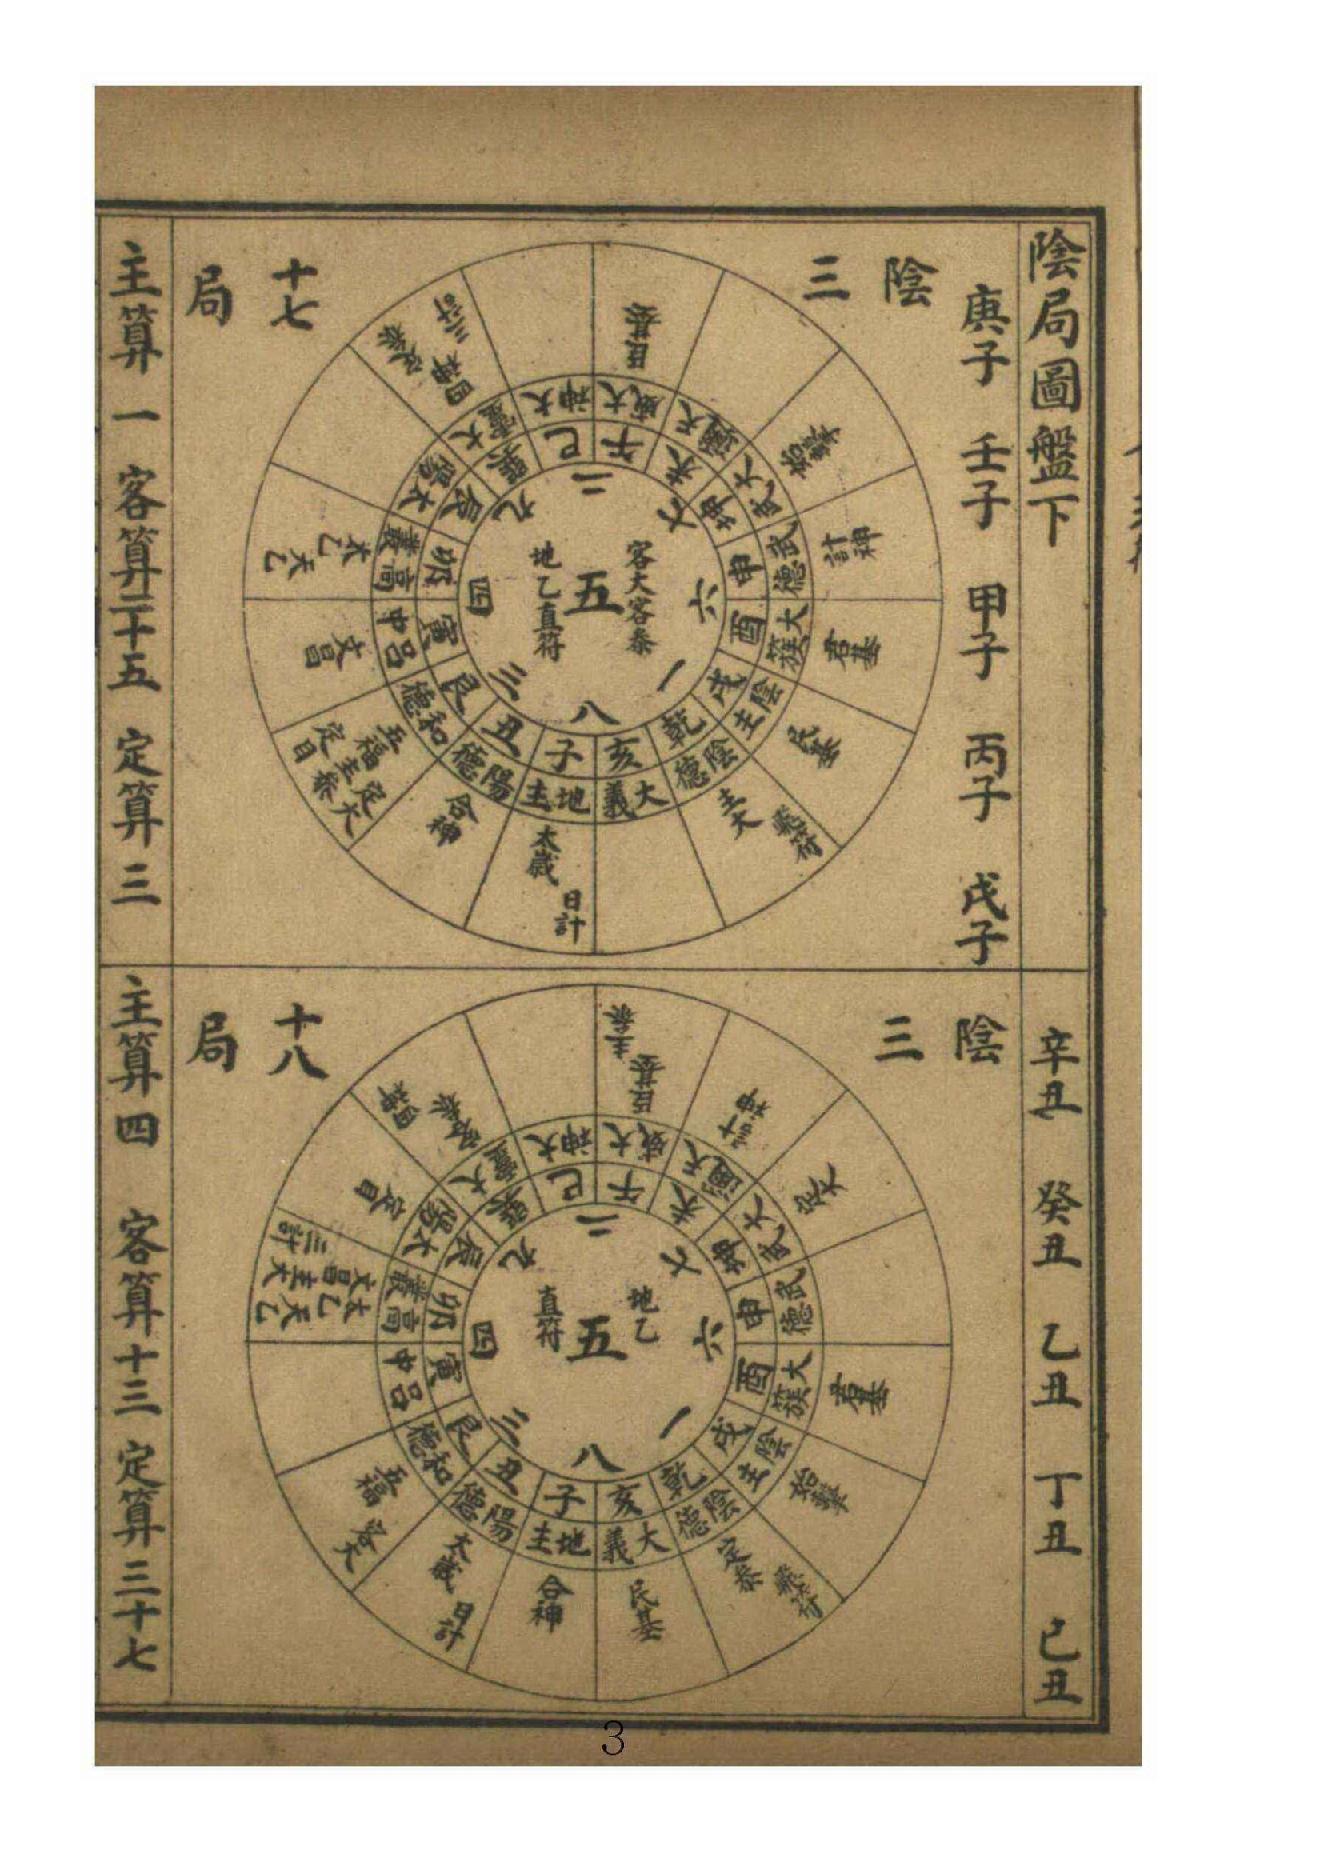 陰局圖盤下
庚子 壬子 甲子 丙子 戊子
陰三
十七局
二
七
六
一
八
三
四
九
五
客大客泰
地乙直符
午 未 坤 申 酉 戌 乾 亥 子 丑 艮 寅 卯 辰 巽 巳
大威 天道 大武 武德 大簇 陰主 陰德 大義 地主 陽德 和德 呂申 高叢 大陽 大炅 大神
始擊
計神
君基
民基
主大 飛符
太歲 日計
合神
五福 主泰 定大 定目
文昌
太乙 天乙
主算一 客算二十五 定算三
辛丑 癸丑 乙丑 丁丑 己丑
陰三
十八局
二
七
六
一
八
三
四
九
五
地乙
直符
午 未 坤 申 酉 戌 乾 亥 子 丑 艮 寅 卯 辰 巽 巳
大武 武德 大簇 陰主 陰德 大義 地主 陽德 和德 呂申 高叢
計神
定大
君基
始擊
定泰 飛符
民基
合神
太歲 日計
五福 客大
太乙 天乙 文昌 主大 三計
定目
主算四 客算十三 定算三十七
3